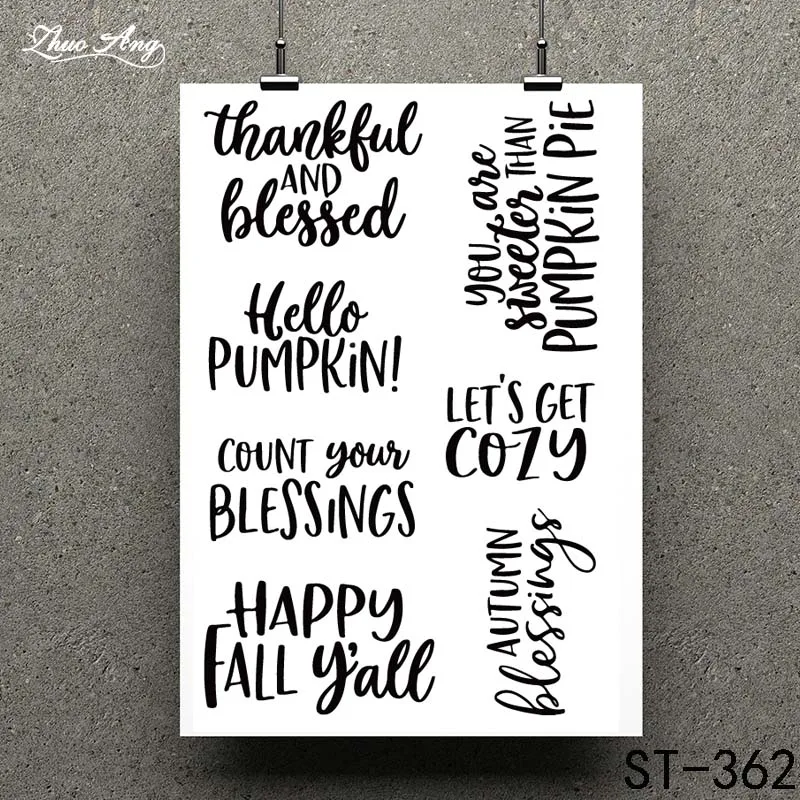 Zhuo Ang
thankful
AND
blessed
Hello
PUMPKiN!
COUNT your
BLESSiNGS
HAPPY
FALL y'all
YOU are
sweeter THAN
PUMPKiN PiE
LET'S GET
COZY
AUTUMN
blessings
ST-362